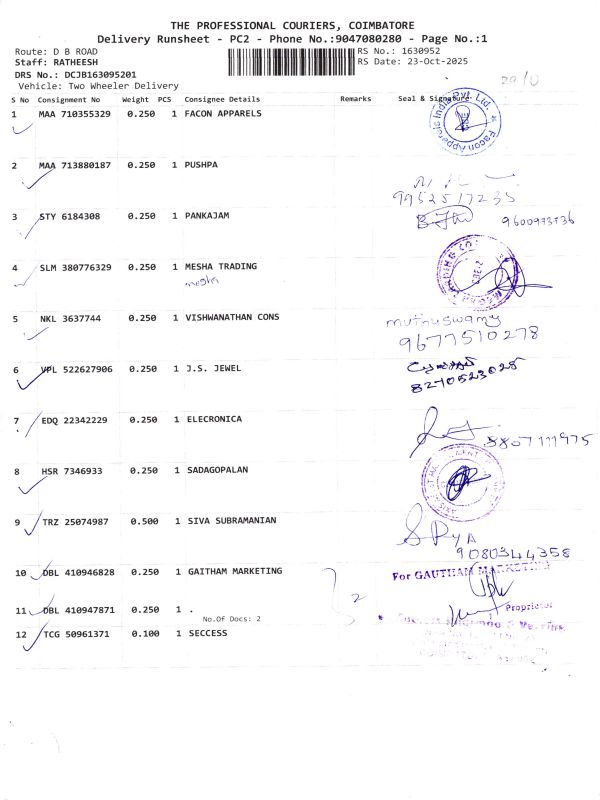 THE PROFESSIONAL COURIERS, COIMBATORE
Delivery Runsheet - PC2 - Phone No.:9047080280 - Page No.:1
Route: D B ROAD
RS No.: 1630952
Staff: RATHEESH
RS Date: 23-Oct-2025
DRS No.: DCJB163095201
Vehicle: Two Wheeler Delivery
S No Consignment No Weight PCS Consignee Details Remarks Seal & Signature
1 MAA 710355329 0.250 1 FACON APPARELS
Facon Apparels India Pvt. Ltd.
2 MAA 713880187 0.250 1 PUSHPA
9952517235
3 STY 6184308 0.250 1 PANKAJAM
4 SLM 380776329 0.250 1 MESHA TRADING
5 NKL 3637744 0.250 1 VISHWANATHAN CONS
muthuswamy
9677510278
6 VPL 522627906 0.250 1 J.S. JEWEL
8270523025
7 EDQ 22342229 0.250 1 ELECRONICA
8807111975
8 HSR 7346933 0.250 1 SADAGOPALAN
9 TRZ 25074987 0.500 1 SIVA SUBRAMANIAN
9080344358
10 DBL 410946828 0.250 1 GAITHAM MARKETING
For GAUTHAM MARKETING
2
11 DBL 410947871 0.250 1 .
Proprietor
No.Of Docs: 2
12 TCG 50961371 0.100 1 SECCESS